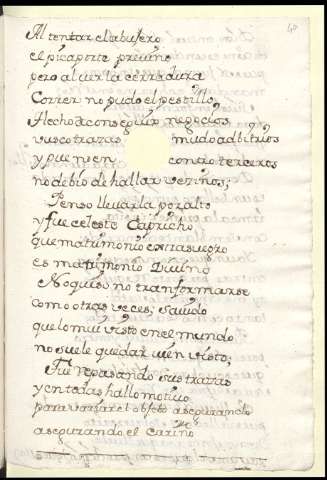 48
Al tentar el abujero
el picaporte previno
pero al ver la cerradura
Correr no pudo el pestillo,
Hecho a conseguir negocios
busco trazas mudo adbitrios
y pues en contro terceros
no debio de hallar vezinos;
Penso llevarla por alto
y fue celeste Capricho
que matrimonio extrasuegro
es matrimonio Divino
No quiso no tranformarse
como otras veces, savido
que lo mui visto en el mundo
no suele quedar vien visto;
Fue repasando sus trazas
y en todas hallo motivo
para variar el objeto asegurando
asegurando el cariño